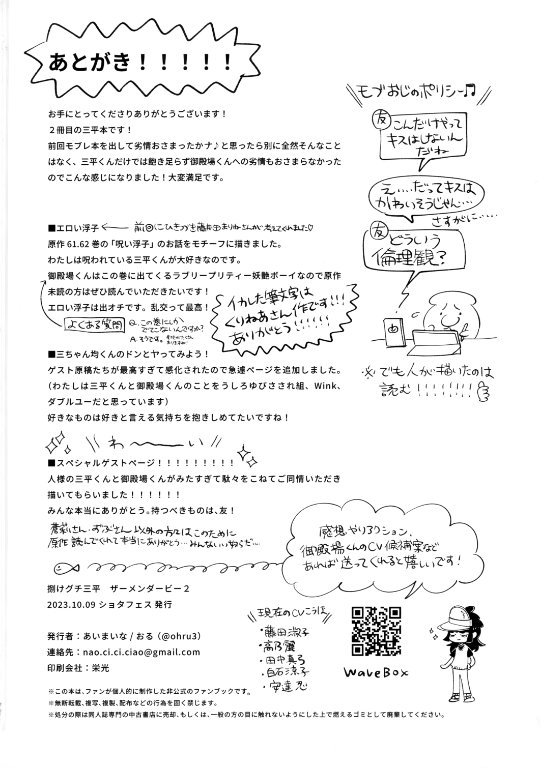 あとがき！！！！！
お手にとってくださりありがとうございます！
２冊目の三平本です！
前回モブレ本を出して劣情おさまったかナ♪と思ったら別に全然そんなこと
はなく、三平くんだけでは飽き足らず御殿場くんへの劣情もおさまらなかった
のでこんな感じになりました！大変満足です。
■エロい浮子
原作 61.62 巻の「呪い浮子」のお話をモチーフに描きました。
わたしは呪われている三平くんが大好きなのです。
御殿場くんはこの巻に出てくるラブリープリティー妖艶ボーイなので原作
未読の方はぜひ読んでいただきたいです！
エロい浮子は出オチです。乱交って最高！
よくある質問
Q.この巻にしか
でてこないんですか？
A.そうです。
イカした筆文字は
くりねあさん作です！！！
ありがとう！！！！！！
■三ちゃん均くんのドンとやってみよう！
ゲスト原稿たちが最高すぎて感化されたので急遽ページを追加しました。
（わたしは三平くんと御殿場くんのことをうしろゆびさされ組、Wink、
ダブルユーだと思っています）
好きなものは好きと言える気持ちを抱きしめてたいですね！
わ〜〜い
■スペシャルゲストページ！！！！！！！！！
人様の三平くんと御殿場くんがみたすぎて駄々をこねてご同情いただき
描いてもらいました！！！！！！
みんな本当にありがとう。持つべきものは、友！
以外の方々はこのために
原作読んでくれて本当にありがとう…
捌けグチ三平　ザーメンダービー２
2023.10.09 ショタフェス 発行
発行者：あいまいな / おる（@ohru3）
連絡先：nao.ci.ci.ciao@gmail.com
印刷会社：栄光
※この本は、ファンが個人的に制作した非公式のファンブックです。
※無断転載、複写、複製、配布などの行為を固く禁じます。
※処分の際は同人誌専門の中古書店に売却、もしくは、一般の方の目に触れないようにした上で燃えるゴミとして廃棄してください。
モブおじのポリシー♫
友
こんだけやって
キスはしないん
だね
え…だってキスは
かわいそうじゃん…
さすがに…
友
どういう
倫理観？
※でも人が描いたのは
読む！！！！！！！
感想やリアクション、
御殿場くんのCV候補案など
あれば送ってくれると嬉しいです！
現在のCVこうほ
・藤田淑子
・高乃麗
・田中真弓
・白石涼子
・安達忍
WaveBox